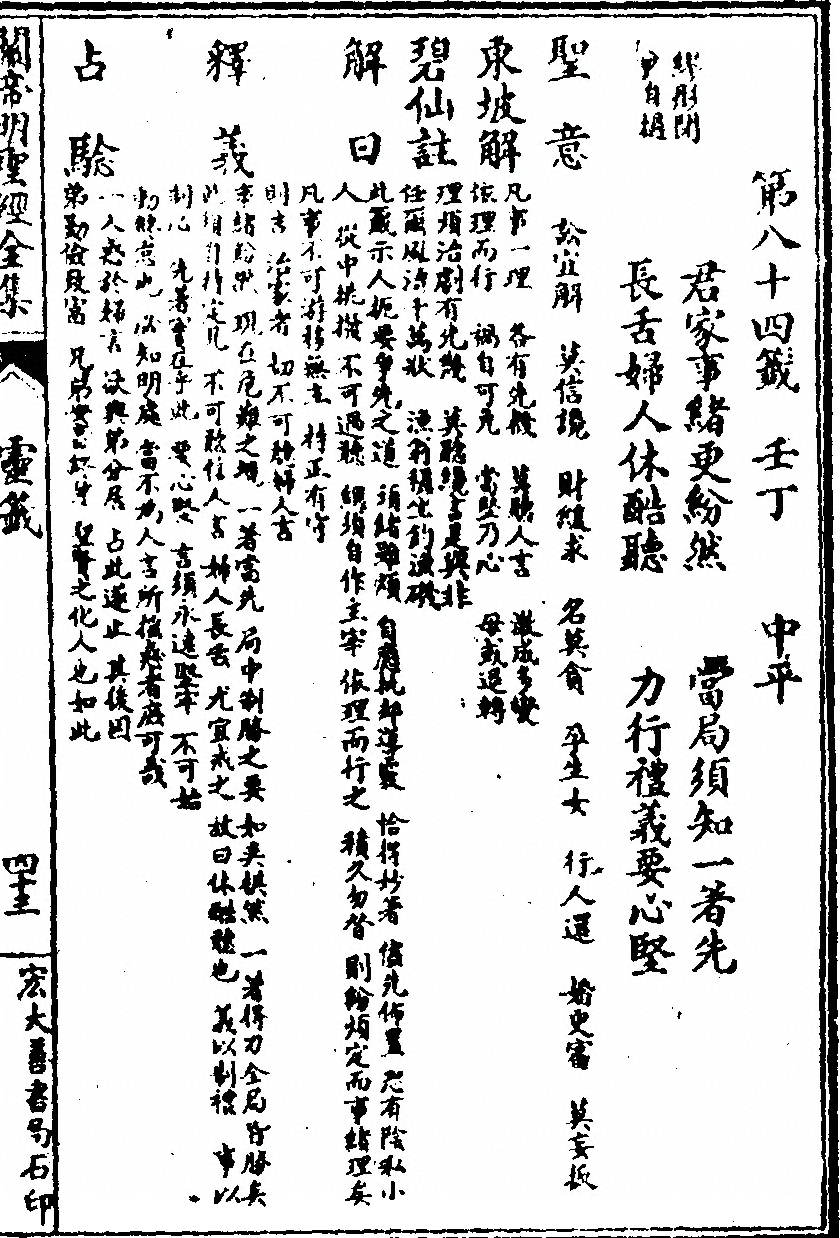 第八十四籤　壬丁　中平
繆彤閉
戶自撾
君家事緒更紛然　當局須知一著先
長舌婦人休酷聽　力行禮義要心堅
聖意　訟宜解　莫信讒　財緩求　名莫貪　孕生女　行人還　婚更審　莫妄扳
東坡解　凡事一理　各有先後　莫聽人言　激成多變
依理而行　禍自可免　當堅乃心　毋或退轉
碧仙註　理煩治劇有先幾　莫聽繩言是與非
任爾風波千萬狀　漁翁穩坐釣漁磯
解曰　此籤示人扼要爭先之道　須緒雖煩　自應執却導窾　恰得妙著　儘先佈置　恐有陰私小
人　從中挑撥　不可過聽　總須自作主宰　依理而行之　積久勿替　則紛煩定而事緒理矣
凡事不可游移無主　持正有守
則吉　治家者　切不可聽婦人言
釋義　事緒紛然　現在危難之境　一著當先　局中制勝之要　如奕棋然　一著得力全局皆勝矣
此須自持定見　不可聽信人言　婦人長舌　尤宜戒之　故曰休酷聽也　義以制禮　事以
制心　先著實在乎此　要心堅　言須永遠堅牢　不可始
勤終怠也　以知明處當　不為人言所搖惑者庶可哉
占驗　一人惑於婦言　欲與弟分居　占此遂止　其後因
弟勤儉致富　兄弟安享終身　聖賢之化人也如此
關帝明聖經全集　靈籤　四十三　宏大善書局石印